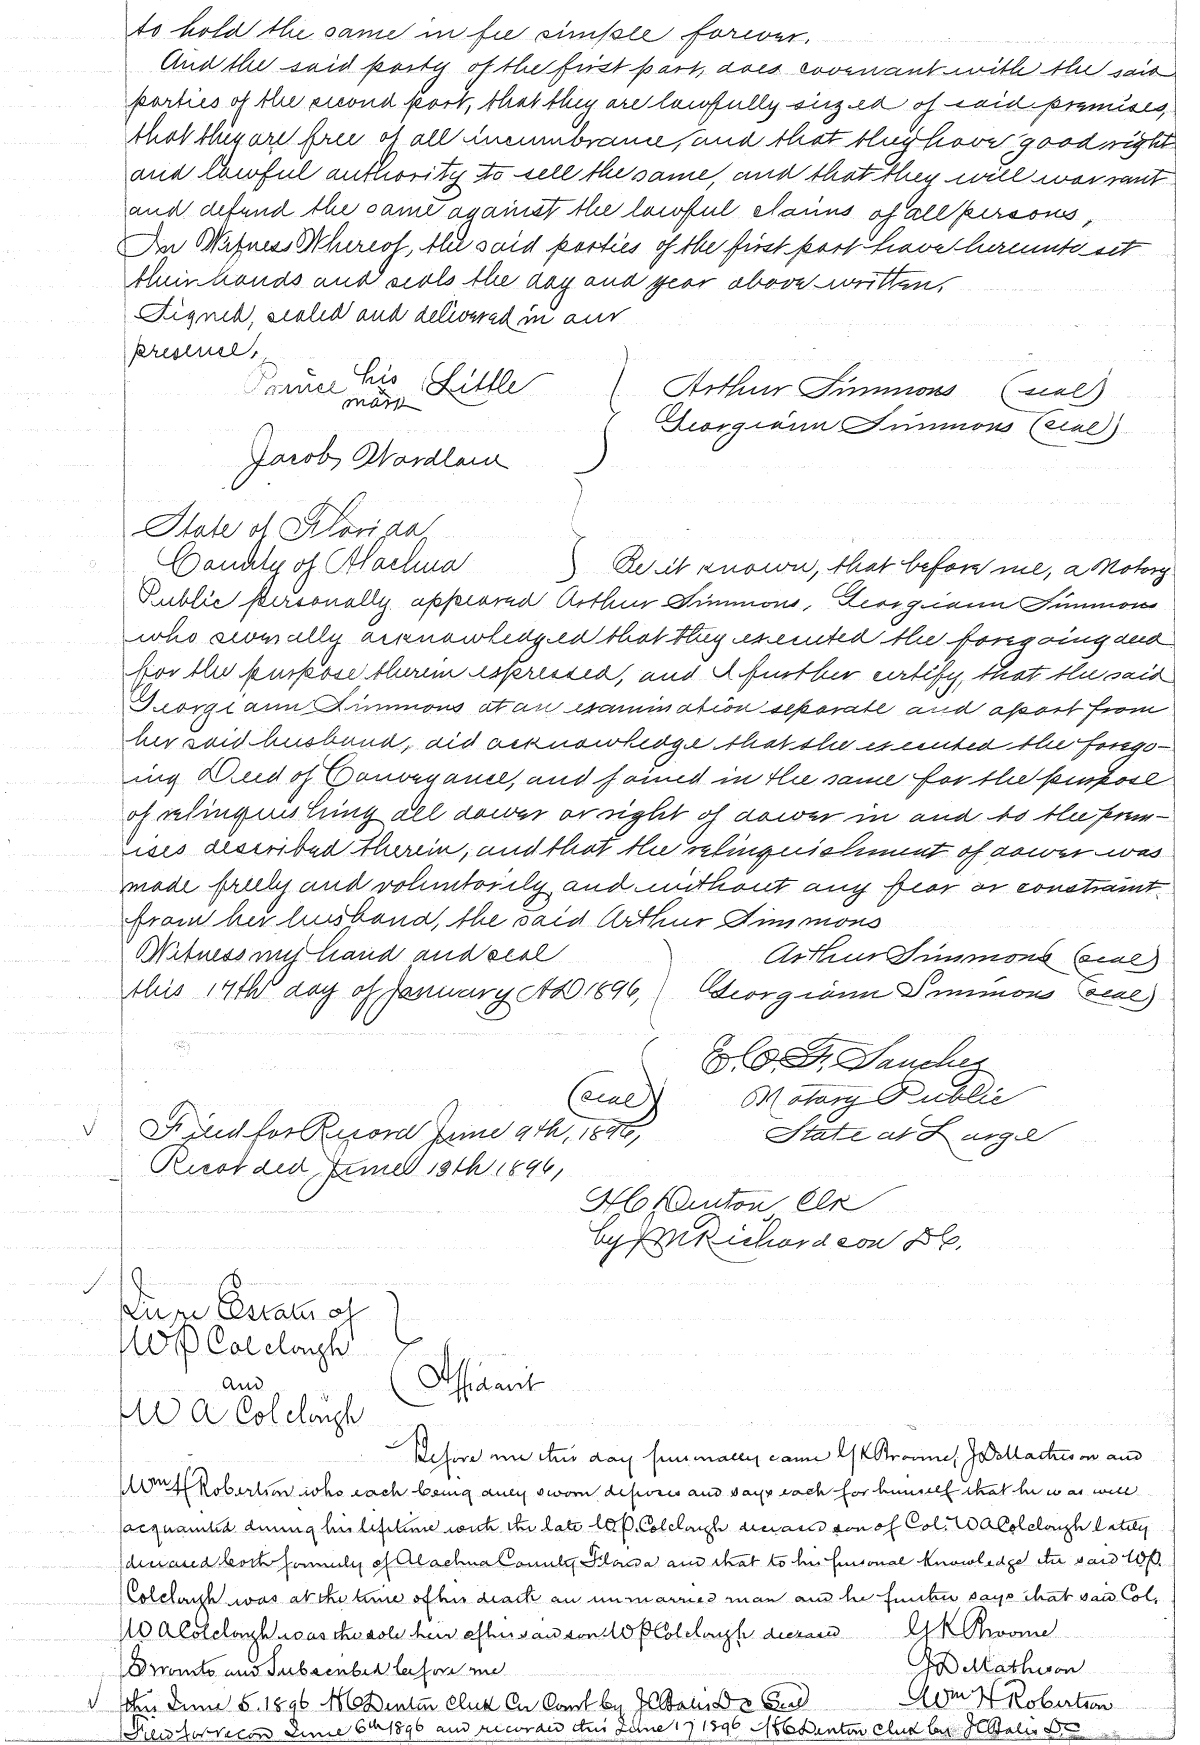 to hold the same in fee simple forever.
And the said party of the first part, does covenant with the said
parties of the second part, that they are lawfully siezed of said premises,
that they are free of all incumbrance, and that they have good right
and lawful authority to sell the same, and that they will warrant
and defend the same against the lawful claims of all persons,
In Witness Whereof, the said parties of the first part have hereunto set
their hands and seals the day and year above written.
Signed, sealed and delivered in our
presense,
Prince his mark Little
Arthur Simmons (seal)
Georgiann Simmons (seal)
Jacob Wardlaw
State of Florida
County of Alachua } Be it known, that before me, a Notary
Public personally appeared Arthur Simmons, Georgiann Simmons
who severally acknowledged that they executed the foregoing deed
for the purpose therein expressed, and I further certify, that the said
Georgiann Simmons at an examination separate and apart from
her said husband, did acknowledge that she executed the forego-
ing Deed of Conveyance, and joined in the same for the purpose
of relinquishing all dower or right of dower in and to the prem-
ises described therein, and that the relinquishment of dower was
made freely and voluntarily and without any fear or constraint
from her husband, the said Arthur Simmons
Witness my hand and seal Arthur Simmons (seal)
this 17th day of January AD 1896, Georgiann Simmons (seal)
E.C.F. Sanchez
(seal) Notary Public
Filed for Record June 9th, 1896, State at Large
Recorded June 13th 1896,
H C Denton, Clk
by J M Richardson D C.
In re Estate of
W P Colclough
and (Affidavit
W A Colclough
Before me this day personally came G K Broome, J D Matheson and
Wm H Robertson who each being duly sworn deposes and says each for himself that he was well
acquainted during his lifetime with the late W.P. Colclough deceased son of Col. W A Colclough lately
deceased both formerly of Alachua County Florida and that to his personal knowledge the said W.P.
Colclough was at the time of his death an unmarried man and he further says that said Col.
W A Colclough was the sole heir of his said son W P Colclough deceased G K Broome
Sworn to and Subscribed before me J D Matheson
this June 5. 1896 H C Denton Clerk Cir Court by D C Seal Wm H Robertson
Filed for record June 6th 1896 and recorded this June 17 1896 H C Denton Clerk by D C